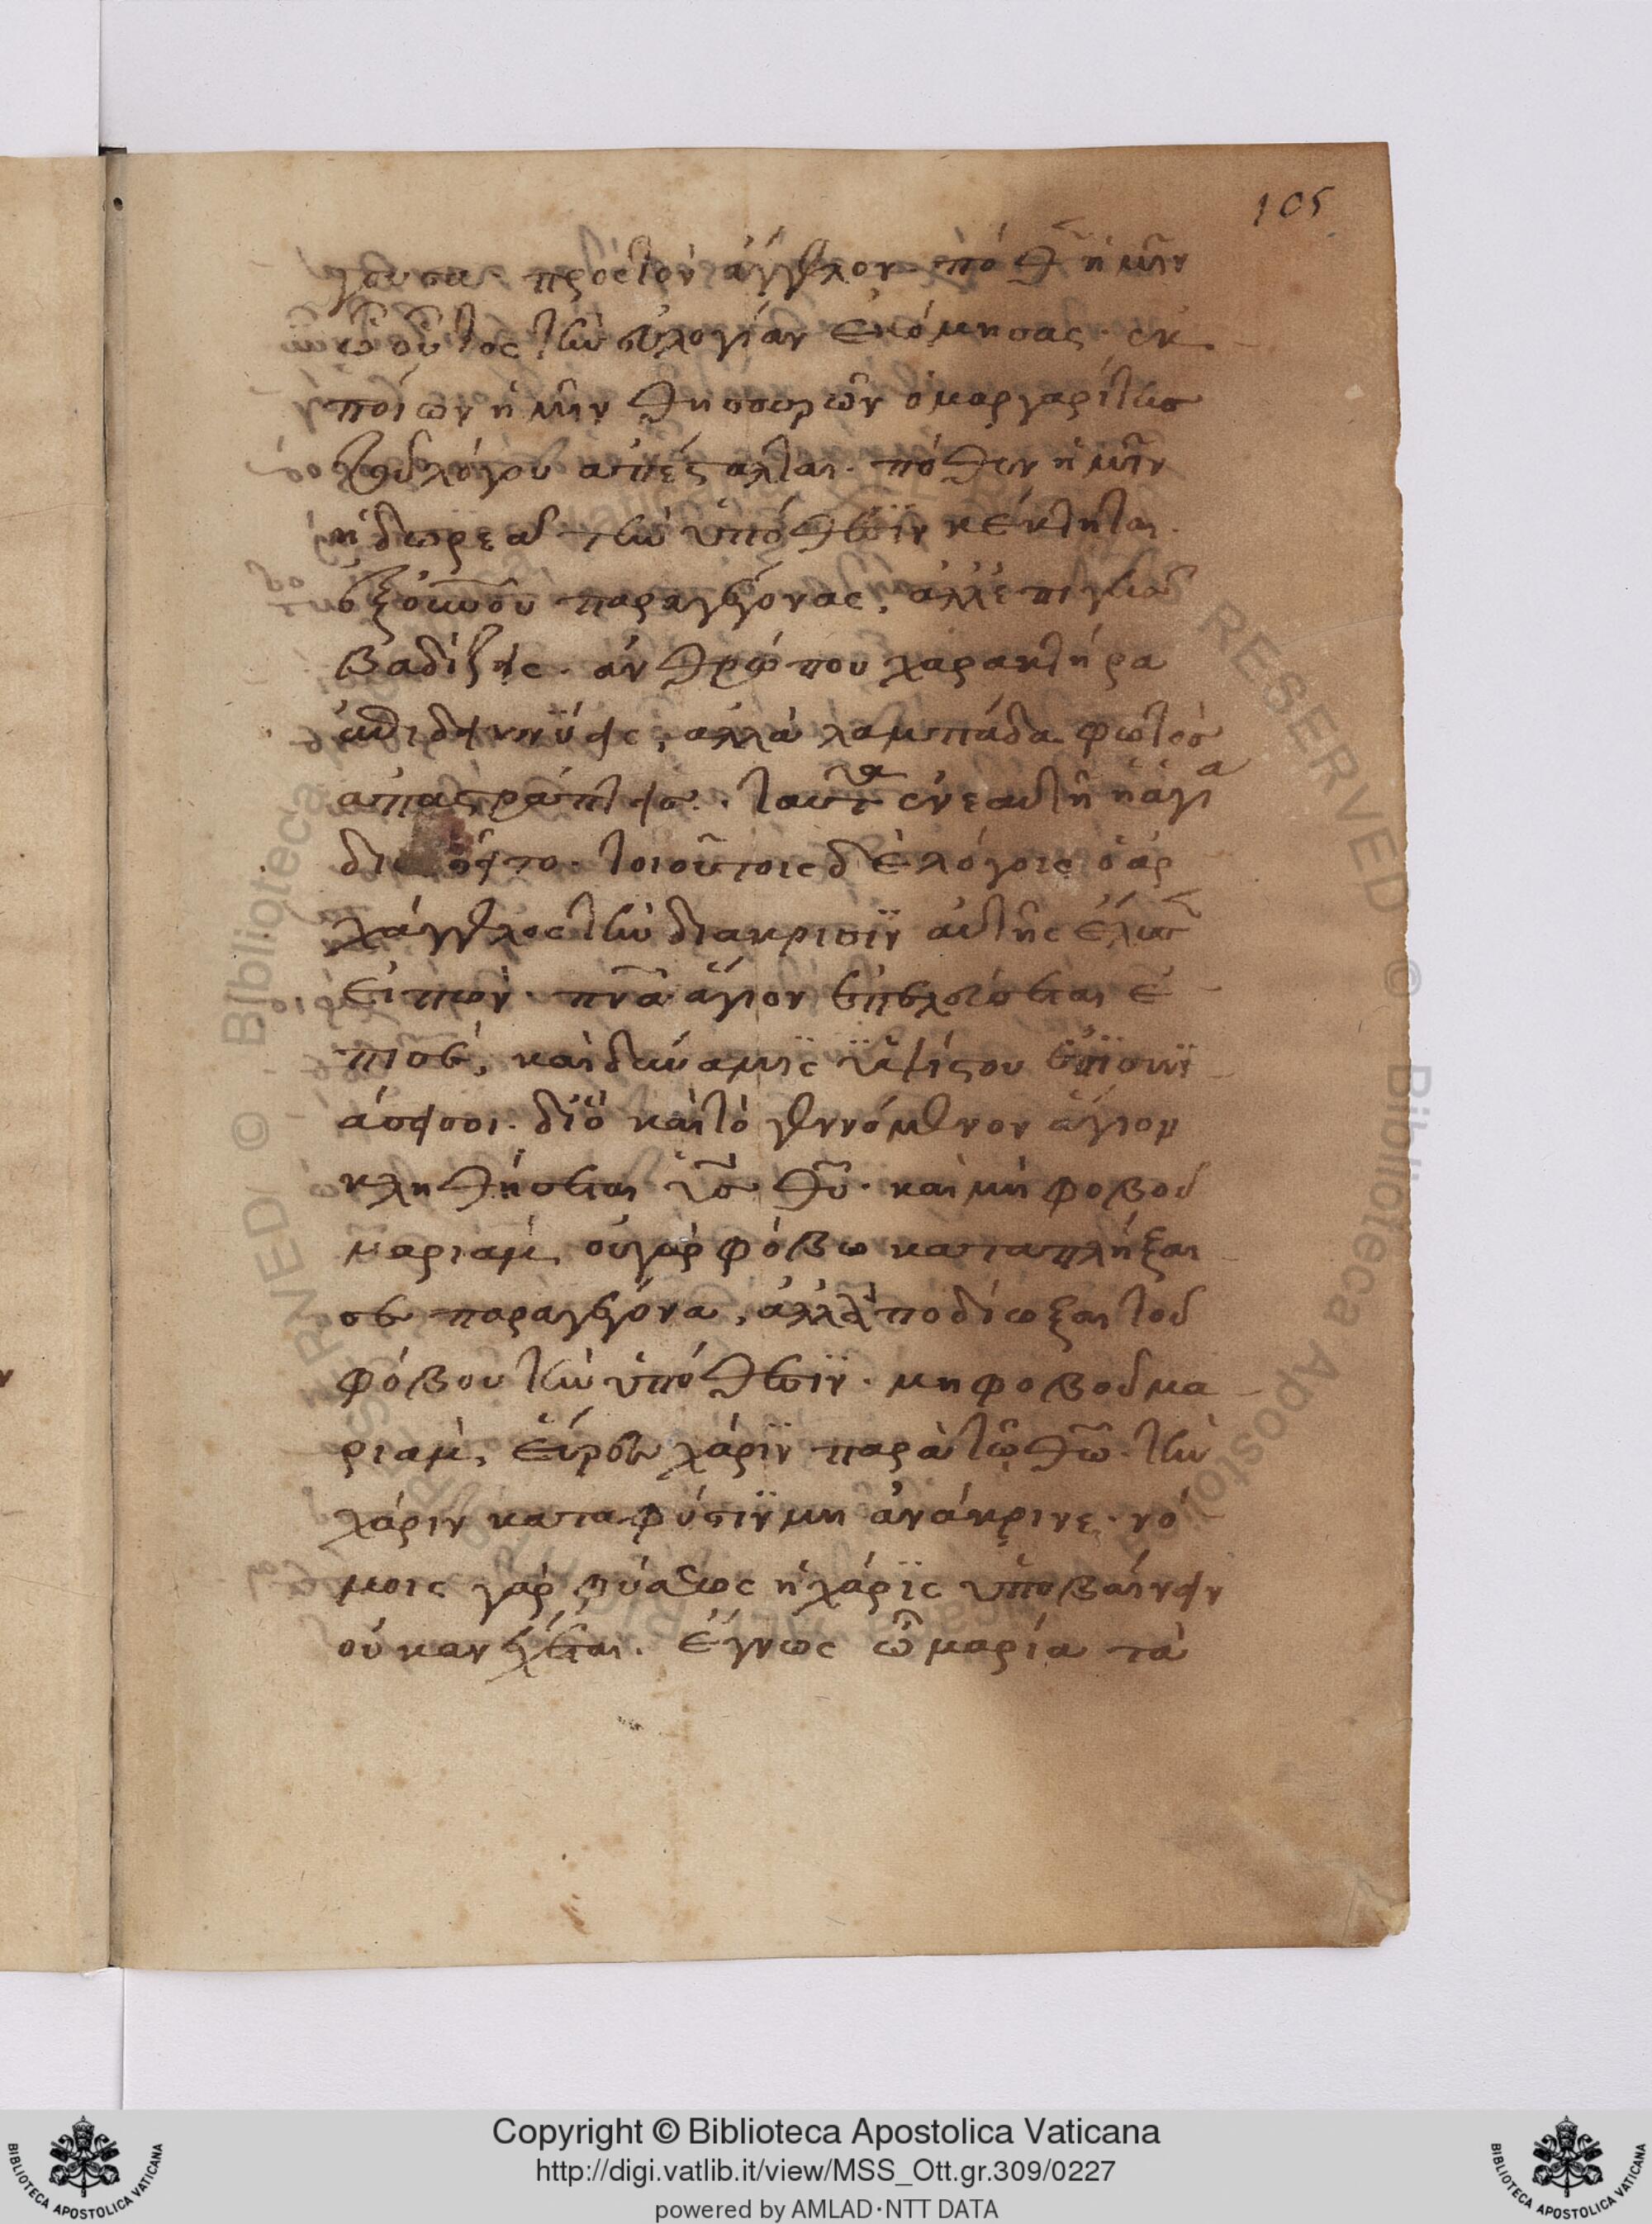 105
γουσα προς τὸν ἄγγελον· πόθεν ἡμῖν
ὦ οὗτος τὴν εὐλογίαν ἐκόμησας· ἐκ
ποίων ἡμῖν θησαυρῶν ὁ μαργαρίτης
τοῦ λόγου ἀπέσταλται· πόθεν ἡμῖν
ἡ δωρεὰ τὴν ὑπόθεσϊν κέκτηται·
ἐξ οὐνοῦ παραγέγονας, ἀλλ' ἐπὶ γῆς
βαδίζεις· ἀνθρώπου χαρακτῆρα
ἐπιδεικνύεις, ἀλλὰ λαμπάδα φωτὸσ
ἀπαστράπτεις. ταῦτα ἐν ἑαυτῇ ἡ ἁγία
διε εῖτο· τοιούτοις δὲ λόγοις ὁ ἀρ
χάγγελος τὴν διάκρισϊν αὐτῆς ἔλυσε
εἰπὼν· πνᾶ ἅγιον ἐπελεύσεται ἐ
πὶ σέ, καὶ δύναμϊς ϋψίστου ἐπϊσκϊ
άσει σοι· διὸ καὶ τὸ γεννόμενον ἅγιον
κληθήσεται ϋσ θῦ· καὶ μὴ φοβοῦ
μαριάμ, οὐ γὰρ φόβω καταπλῆξαι
σε παραγέγονα, ἀλλ' ἀποδίωξαι τοῦ
φόβου τὴν ὑπόθεσϊν· μὴ φοβοῦ μα
ριὰμ, εὗρες χάρϊν παρὰ τῶ θῶ· τὴν
χάριν κατα φύσϊν μὴ ἀνάκρινε· νό
μοις γὰρ φύσεως ἡ χάρϊς ὑποβαίνειν
οὐκ ἀνέχεται. ἔγνως ὦ μαρία τὰ
Copyright © Biblioteca Apostolica Vaticana
http://digi.vatlib.it/view/MSS_Ott.gr.309/0227
powered by AMLAD·NTT DATA
BIBLIOTECA APOSTOLICA VATICANA
BIBLIOTECA APOSTOLICA VATICANA